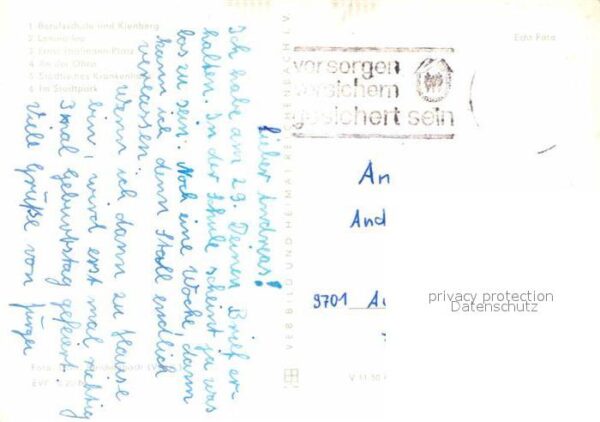 1 Berufsschule und Kienberg
2 Lenina
3 Ernst-Thälmann-Platz
4 An der Ohra
5 Städtisches Krankenhaus
6 Im Stadtpark
Lieber Andreas!
Ich habe am 29. Deinen Brief er-
halten. In der Schule scheint ja was
los zu sein. Noch eine Woche, dann
kann ich den Stall endlich
verlassen.
Wenn ich dann zu Hause
bin, wird erst mal richtig
3 mal Geburtstag gefeiert.
Viele Grüße von Jürgen
EVP
VERLAG BILD UND HEIMAT REICHENBACH I. V.
V 11 50
Echt Foto
vorsorgen
versichern
gesichert sein
An
And
9701 Au
privacy protection
Datenschutz